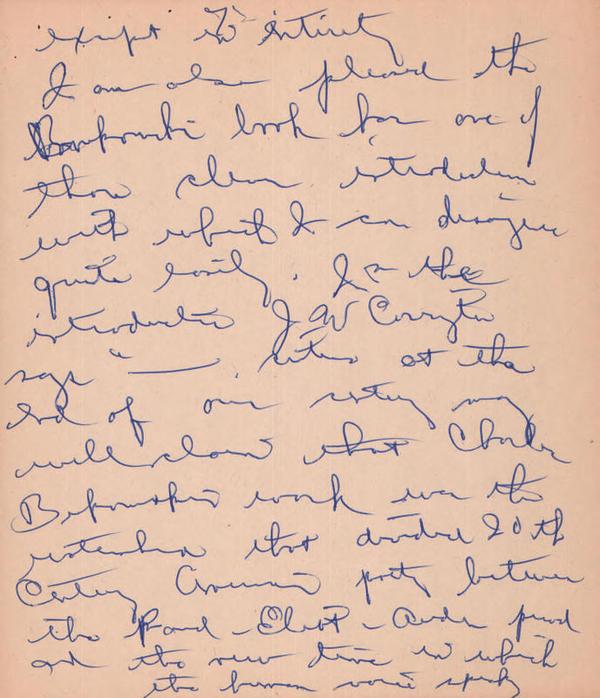 except in entirety
I am also pleased the
Bukowski book has one of
those clever introductions
with which I can disagree
quite easily. In the
introduction J W Corrington
says " — critics at the
end of our century may
well claim that Charles
Bukowski's work was the
watershed that divided 20th
Century American poetry between
the Pound-Eliot-Auden period
and the new time in which
the human voice speaks